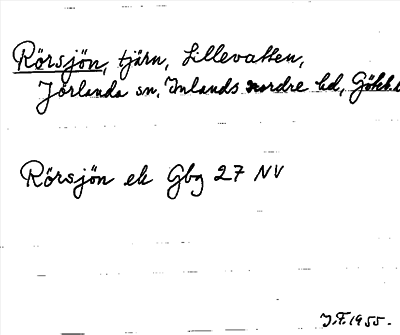 Rörsjön, tjärn, Lillevatten,
Jörlanda sn, Inlands nordre hd, Göteb.
Rörsjön ek Gbg 27 NV
J.F. 1955.